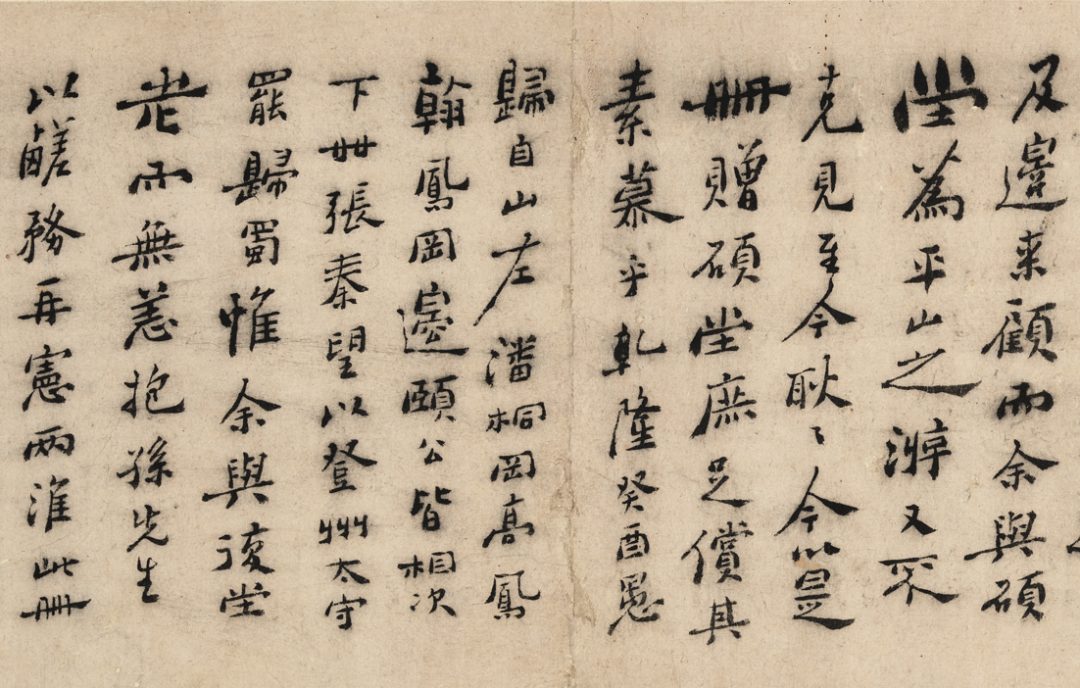 及邊来顧而余與碩
堂為平山之游又不
克見至今耿〻今以是
冊贈碩堂庶足償其
素慕乎乾隆癸酉愚
歸自山左潘桐岡高鳳
翰鳳岡邊頤公皆相次
下世張秦望以登州太守
罷歸蜀惟余與復堂
老而無恙抱孫先生
以鹺務再憲兩淮此冊